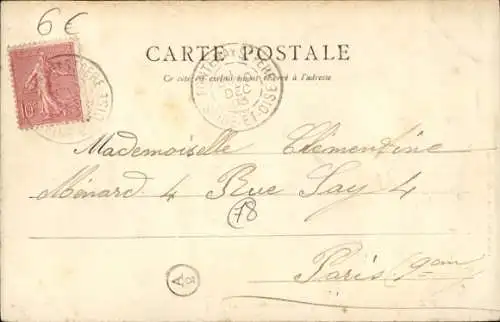 6€
CARTE POSTALE
Ce côté est exclusivement réservé à l'adresse
FONTENAY-ST-PÈRE
DEC
SEINE-ET-OISE
10
Mademoiselle Clémentine
Ménard 4 Rue Say 4
78
Paris 9em
A